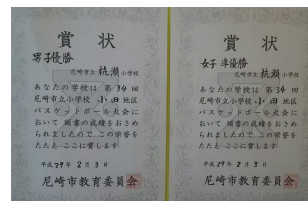 賞状
男子優勝
尼崎市立 杭瀬 小学校
あなたの学校は 第34回
尼崎市立小学校 小田 地区
バスケットボール大会に
おいて 頭書の成績をおさめ
られましたので この栄誉を
たたえ ここに賞します
平成29年2月3日
尼崎市教育委員会
賞状
女子 準優勝
尼崎市立 杭瀬 小学校
あなたの学校は 第34回
尼崎市立小学校 小田 地区
バスケットボール大会に
おいて 頭書の成績をおさめ
られましたので この栄誉を
たたえ ここに賞します
平成29年2月3日
尼崎市教育委員会